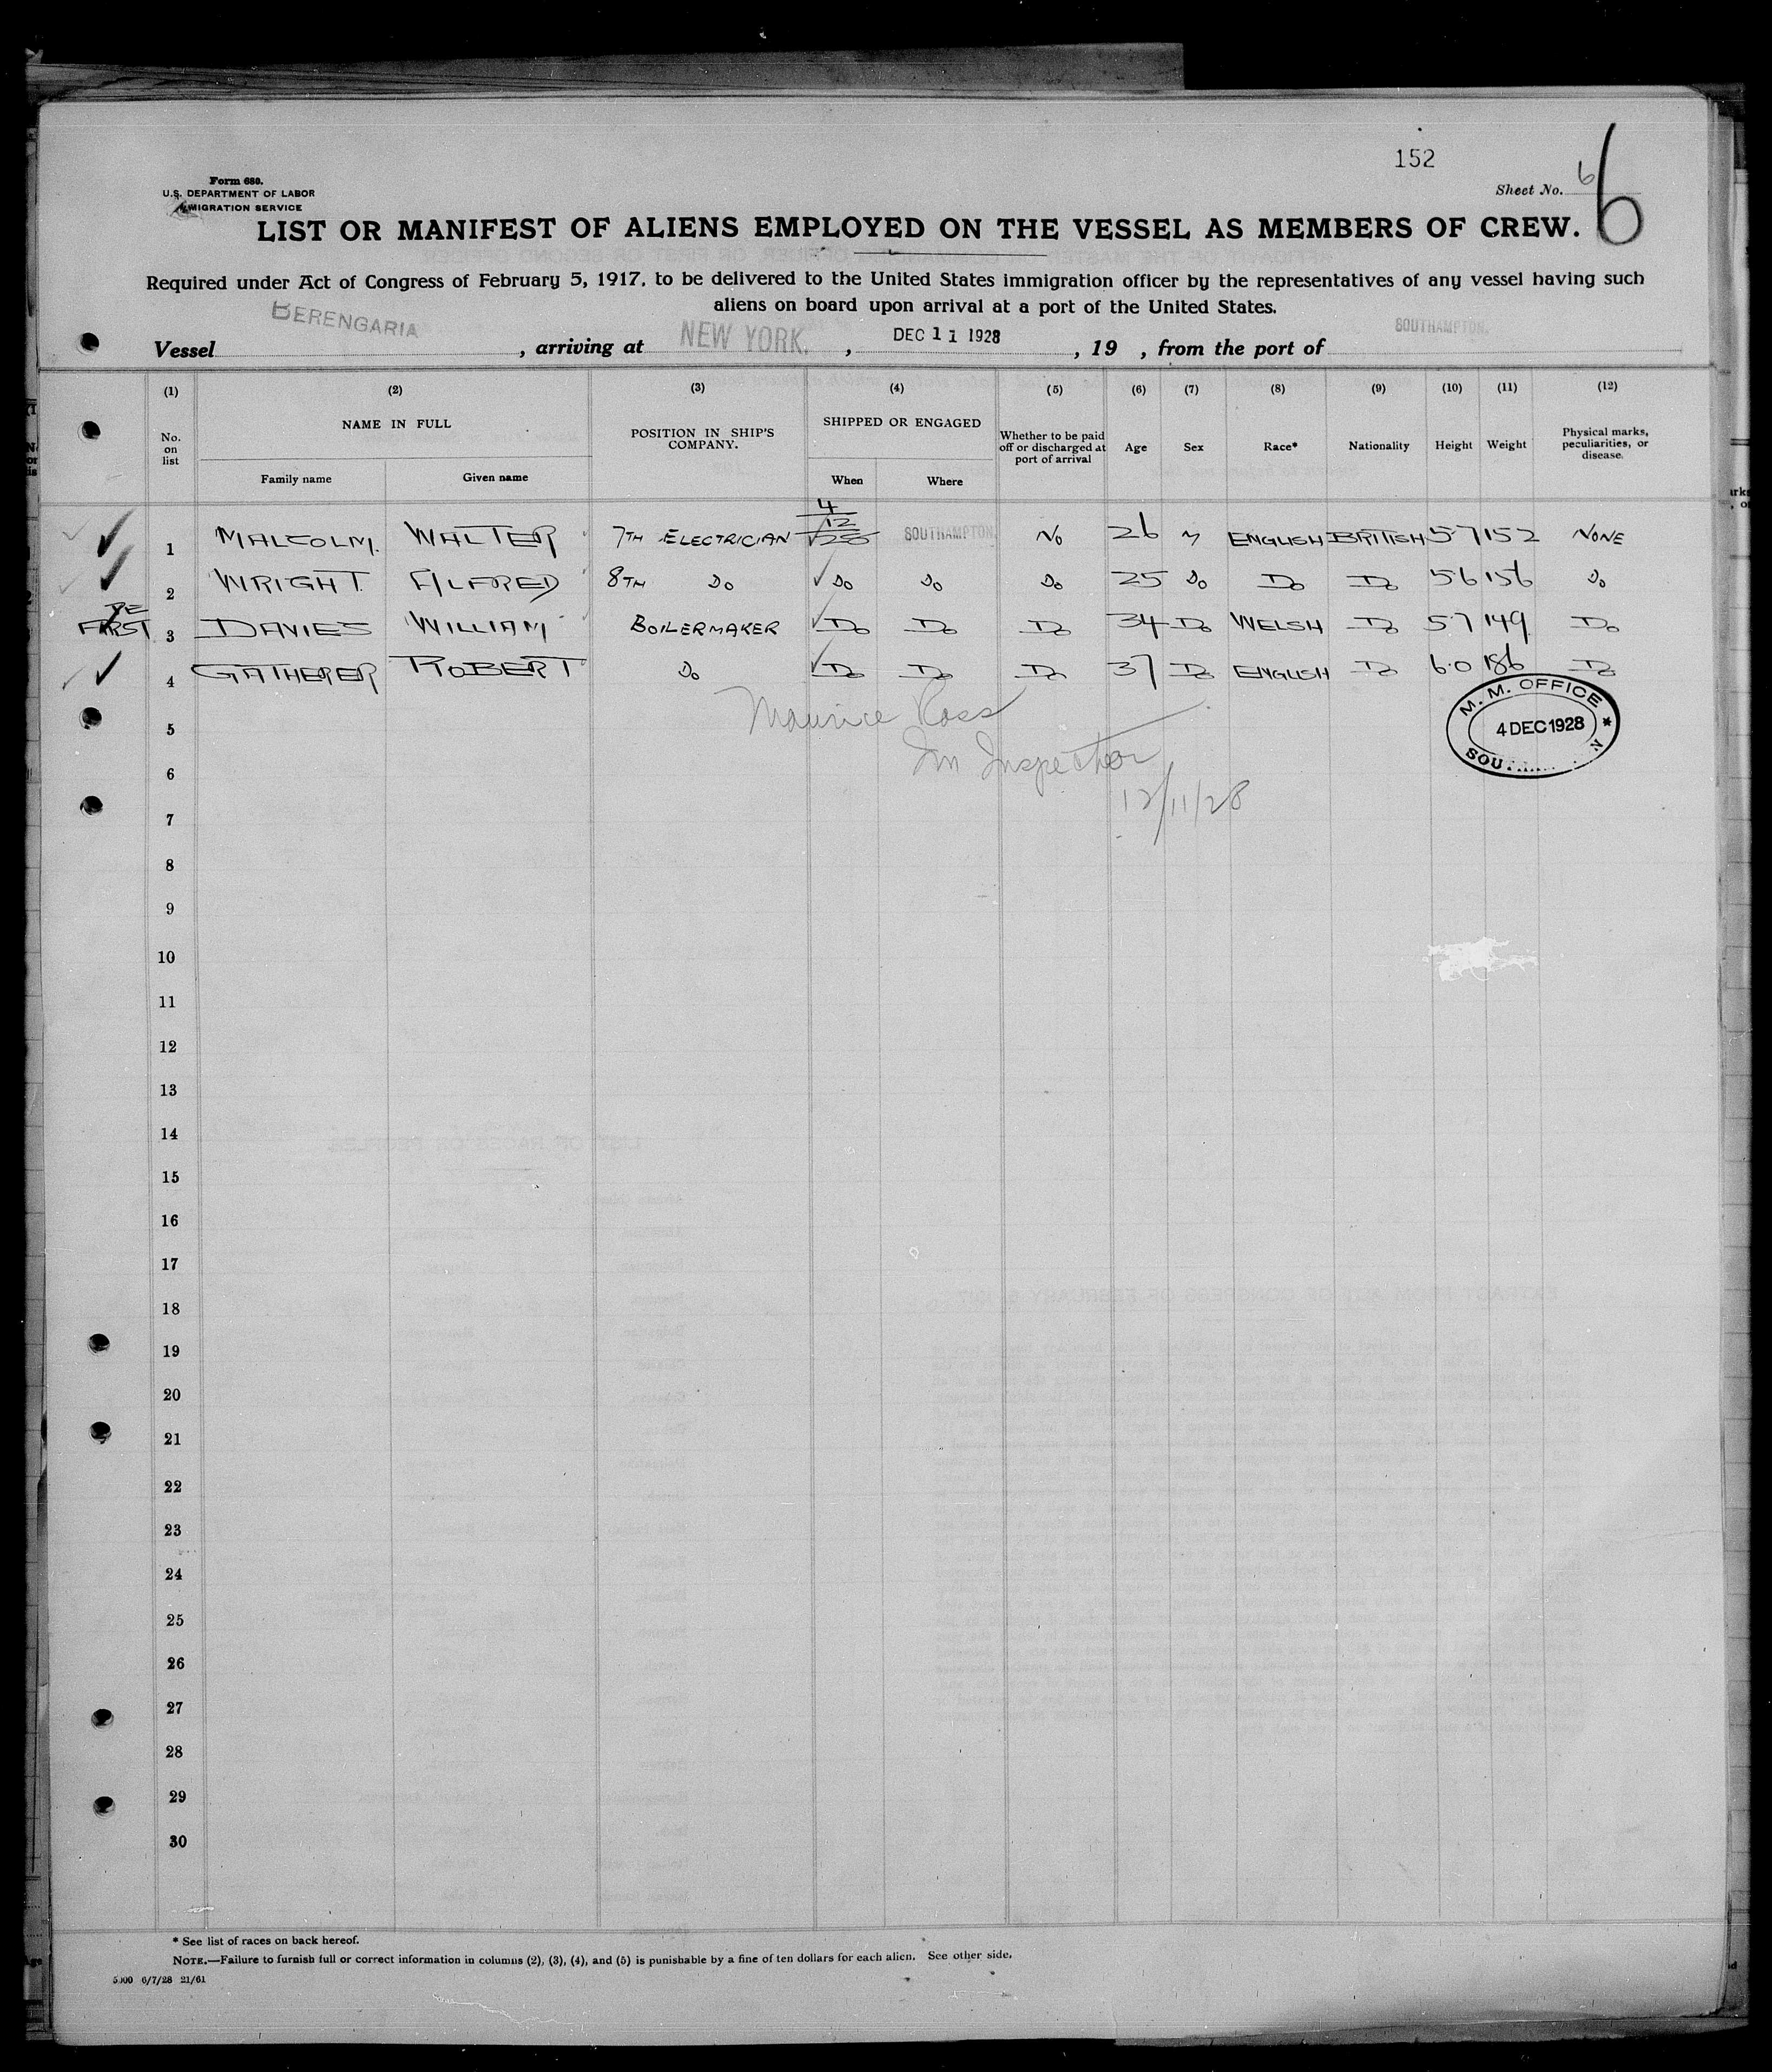 152
Form 680.
U.S. DEPARTMENT OF LABOR
IMMIGRATION SERVICE
Sheet No. 6
6
LIST OR MANIFEST OF ALIENS EMPLOYED ON THE VESSEL AS MEMBERS OF CREW.
Required under Act of Congress of February 5, 1917, to be delivered to the United States immigration officer by the representatives of any vessel having such
aliens on board upon arrival at a port of the United States.
Vessel BERENGARIA, arriving at NEW YORK., DEC 11 1928, 19 , from the port of SOUTHAMPTON.
(1) (2) (3) (4) (5) (6) (7) (8) (9) (10) (11) (12)
No. on list NAME IN FULL POSITION IN SHIP'S COMPANY. SHIPPED OR ENGAGED Whether to be paid off or discharged at port of arrival Age Sex Race* Nationality Height Weight Physical marks, peculiarities, or disease.
Family name Given name When Where
1 MALCOLM. WALTER 7TH ELECTRICIAN 4/12/28 SOUTHAMPTON. NO 26 M ENGLISH BRITISH 5·7 152 NONE
2 WRIGHT. ALFRED 8TH DO DO DO DO 25 DO DO DO 5 6 156 DO
FIRST 3 DAVIES WILLIAM BOILERMAKER DO DO DO 34 DO WELSH DO 5·7 149 DO
4 GATHERER ROBERT DO DO DO DO 37 DO ENGLISH DO 6·0 186 DO
Maurice Ross
Im Inspector
12/11/28
M. M. OFFICE
4 DEC 1928
5
6
7
8
9
10
11
12
13
14
15
16
17
18
19
20
21
22
23
24
25
26
27
28
29
30
* See list of races on back hereof.
NOTE.—Failure to furnish full or correct information in columns (2), (3), (4), and (5) is punishable by a fine of ten dollars for each alien. See other side.
5000 6/7/28 21/61